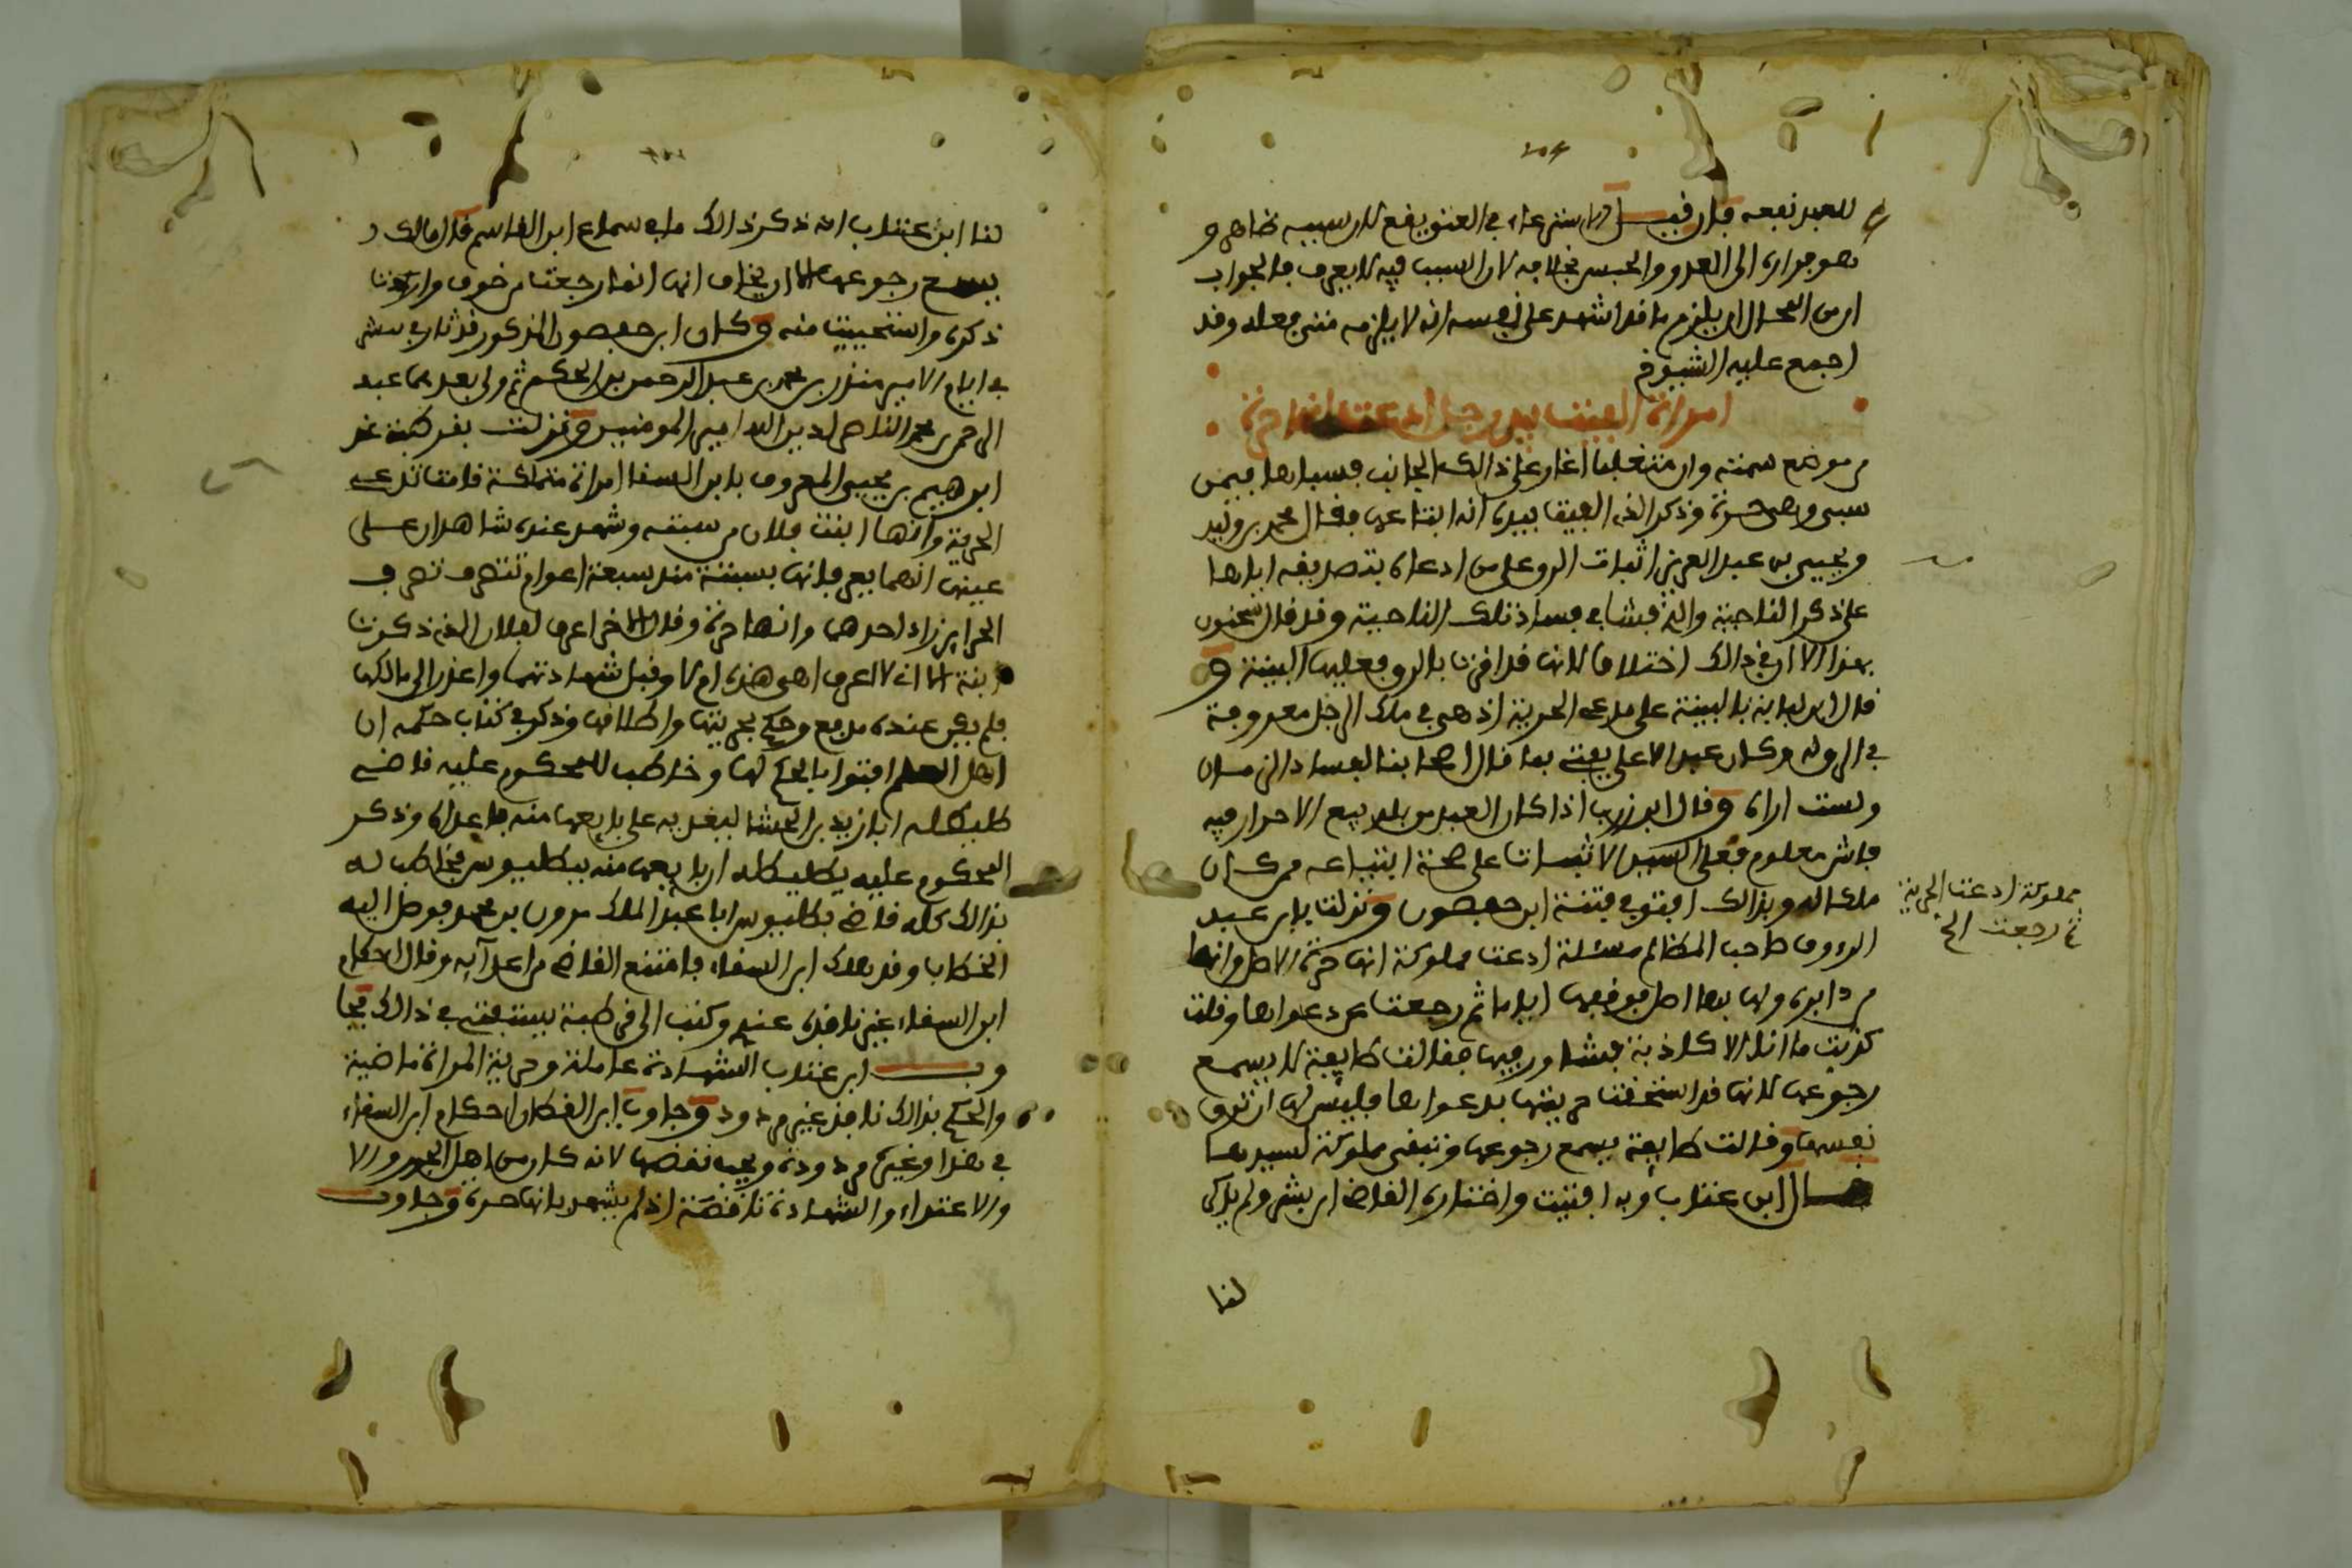 للعبد نفعه فإن قيل الاسترعاء في العتق ينفع لان سببه ظاهر و
هو فراره الى العدو والحبس بخلافه لان السبب فيه لا يعرف فالجواب
ان من المحال ان يلزم ما قد اشهد على نفسه انه لا يلزمه متى فعله وقد
اجمع عليه الشيوخ
امراة الفيت بيد رجل ادعت انها حرة
من موضع سمته وان متغلبا اغار على ذالك الجانب فسباها فيمن
سبى وهي حرة وذكر الذي الفيت بيده انه ابتاعها فقال محمد بن وليد
ويحيى بن عبد العزيز اثبات الرق على من ادعاه بتصديقه اياها
على ذكر الناحية والذي فشا في فساد تلك الناحية وقد قال سحنون
بهذا الا ان في ذالك اختلافا لانها قد اقرت بالرق فعليها البينة و
قال ابن لبابة بالبينة على مدعي الحرية اذ هي في ملك الرجل معروفة
في الرق له وكان عبد الاعلى يفتي بها قال اصحابنا لفساد الزمان
ولست اراه وقال ابن زرب اذا كان العبد من بلد بيع الاحرار فيه
فاش معلوم فعلى السيد الاثبات على صحة ابتياعه ممن كان
ملكا له وبذالك افتوا في فتنة ابن حفصون ونزلت بابن عبد
الرءوف صاحب المظالم مسئلة ادعت مملوكة انها حرة الاصل وانها
من دابره ولها بها اصل فوقفها اياما ثم رجعت عن دعواها وقلت
كذبت ما انا الا كاذبة فشاور فيها فقالت طايفة لا يسمع
رجوعها لانها قد استحقت حريتها بدعواها فليس لها ان ترق
نفسها وقالت طايفة يسمع رجوعها وتبقى مملوكة لسيدها
قال ابن عتاب وبه افتيت واختاره القاضي ابن بشر ولم يذكر
لنا
مملوكة ادعت الحرية
ثم رجعت الخ
لنا ابن عتاب انه ذكر ذالك ما في سماع ابن القاسم قال مالك
يسمع رجوعها الا ان يخاف انها انما رجعت من خوف واردت
ذكره واستحييت منه وكان ابن حفصون المذكور قد ثار في ببشتر
في ايام الامير منذر بن محمد بن عبد الرحمن بن الحكم ثم ولي بعدهما عبد
الرحمن بن محمد الناصر لدين الله امير المومنين ونزلت بقرطبة عند
ابرهيم بن يحيى المعروف بابن السقا امراة متملكة قامت تدعي
الحرية وانها ابنت فلان من سبتة وشهد عنده شاهدان على
عينها انهما يعرفانها بسبتة منذ سبعة اعوام تتصرف تصرف
الحراير زاد احدهما وانها حرة وقال الاخر اعرف لفلان الذي ذكرت
ابنة الا اني لا اعرف اهي هذه ام لا وقبل شهادتهما واعذر الى مالكها
فلم يكن عنده مدفع وحكم بحريتها واطلاقها وذكر في كتاب حكمه ان
اهل العلم افتوا بالحكم لها وخاطب للمحكوم عليه قاضي
طليطلة ابا زيد بن الحشا ليعديه على بايعها منه فاعداه وذكر
المحكوم عليه بطليطلة ان بايعها منه ببطليوس فخاطب له
بذالك كله قاضي بطليوس ابا عبد الملك مروان بن محمد فوصل اليه
الخطاب وقد هلك ابن السقاء فامتنع القاضي من اعدآيه وقال احكام
ابن السقاء غير نافذة عندي وكتب الى قرطبة يستفتي في ذالك فجا
وب ابن عتاب الشهادة عاملة وحرية المراة ماضية
والحكم بذالك نافذ غير مردود وجاوب ابن القطان احكام ابن السقاء
في هذا وغيره مردودة ويجب نقضها لانه كان من اهل الجور والا
والاعتداء والشهادة ناقصة اذ لم يشهد بانها حرة وجاوب